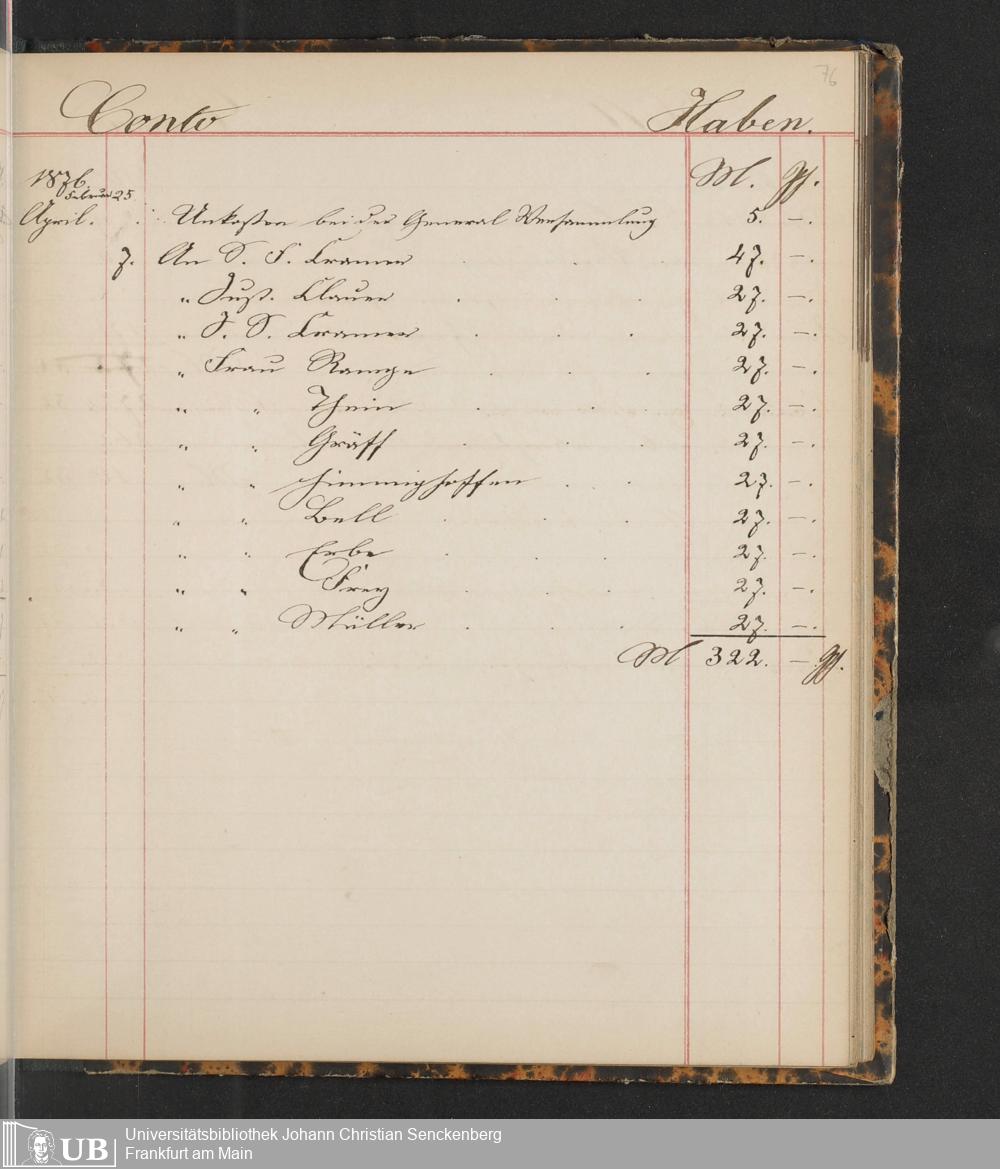 76
Conto Haben.
1876. M. Pf.
Februar 25
April. Unkosten bei der General Versammlung 5. —.
7. An S. F. Cramer 47. —.
" Just. Clauer 27. —.
" J. S. Cramer 27. —.
" Frau Rampe 27. —.
" " Thein 27. —.
" " Gräff 27. —.
" " Himmighoffen 27. —.
" " Bell 27. —.
" " Erbe 27. —.
" " Frey 27. —.
" " Müller 27. —.
M 322. — Pf.
UB
Universitätsbibliothek Johann Christian Senckenberg
Frankfurt am Main